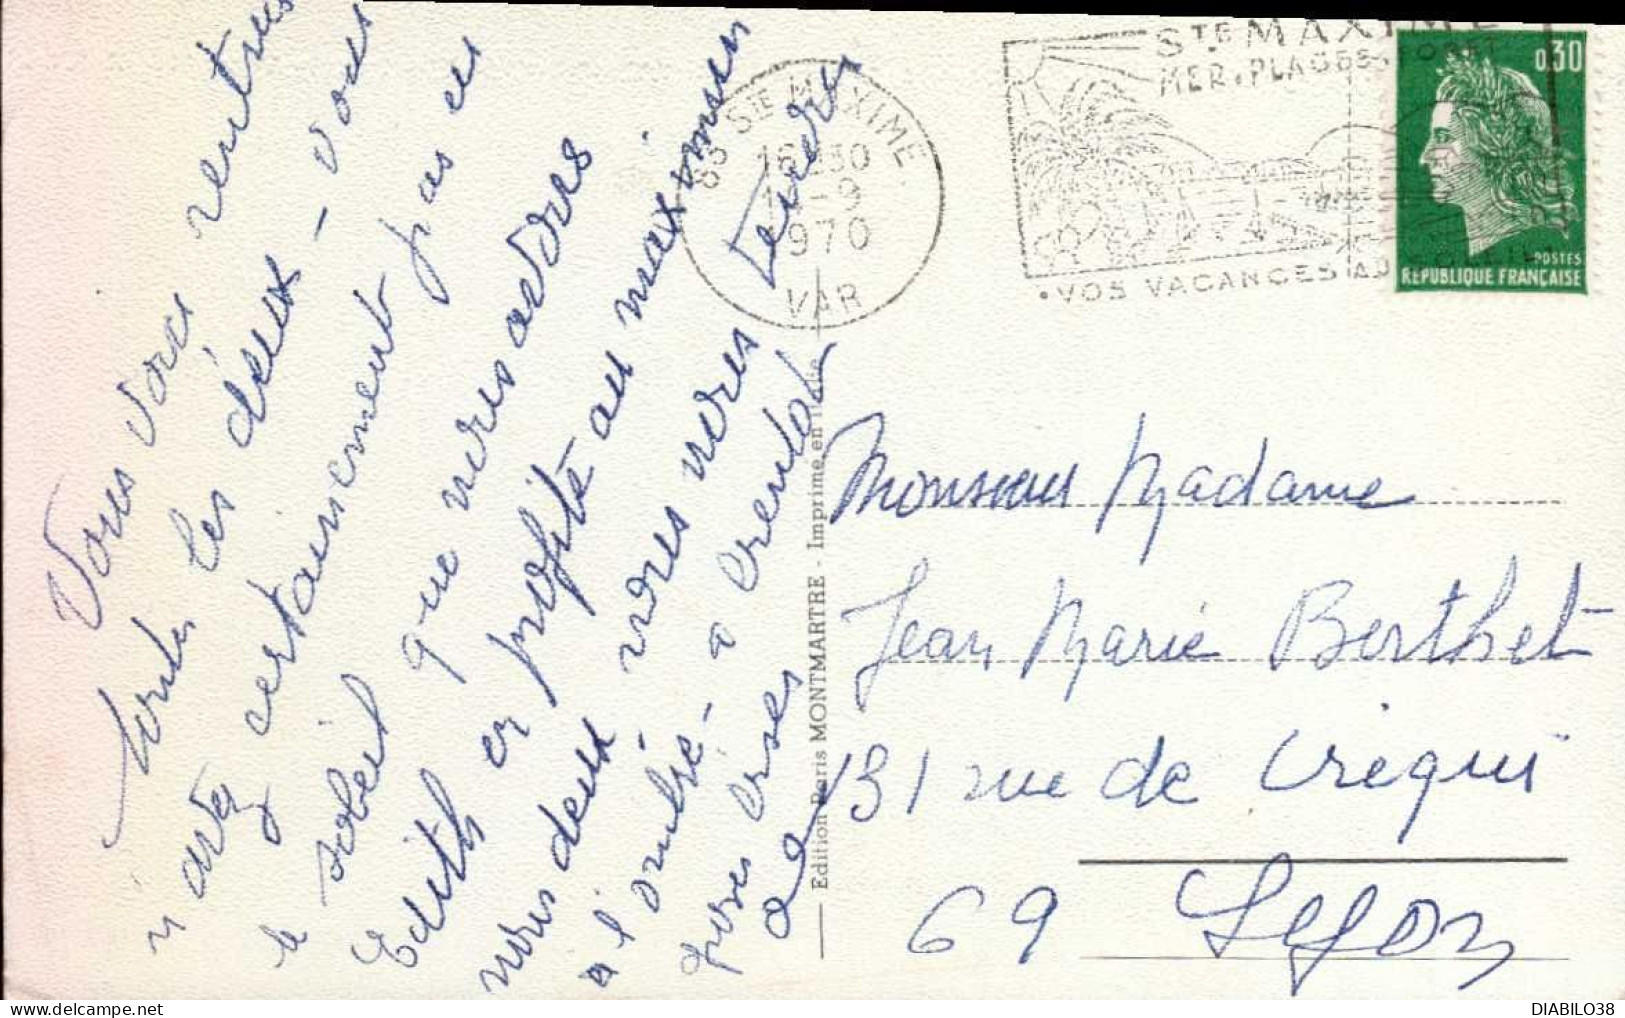 Vous voici rentrés
tous les deux - vous
n'avez certainement pas eu
le soleil que nous avons
Edith en profite au maximum
nous deux nous nous tenons
à l'ombre - a bientôt
Gros bises
STE MAXIME
MER. PLAGES
VOS VACANCES AU SOLEIL
83 STE MAXIME
16 30
-9
1970
VAR
0,30
POSTES
REPUBLIQUE FRANÇAISE
Edition Paris MONTMARTRE - Imprimé en Italie
Monsieur Madame
Jean Marie Berthet
131 rue de Créqui
69 Lyon
DIABILO38